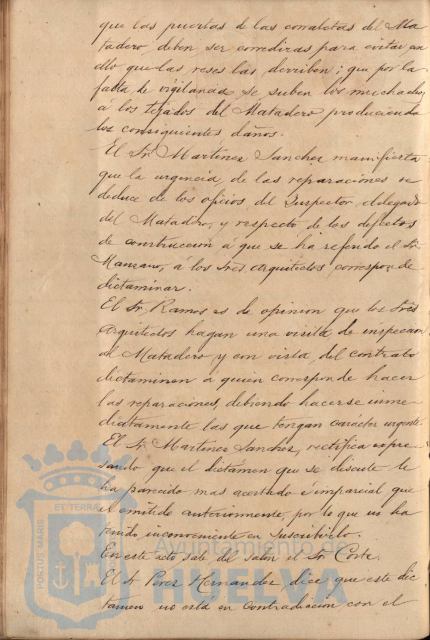 que las puertas de las corraletas del Ma-
tadero, deben ser corredizas para evitar con
ello que las reses las derriben; que por la
falta de vigilancia se suben los muchachos
á los tejados del Matadero produciendo
los consiguientes daños.
El Sr. Martinez Sanchez manifiesta
que la urgencia de las reparaciones se
deduce de los oficios del Inspector, delegado
del Matadero, y respecto de los defectos
de construccion á que se ha referido el Sr.
Manzano, á los Sres arquitectos, corresponde
dictaminar.
El Sr. Ramos es de opinion que los Sres
Arquitectos hagan una visita de inspeccion
al Matadero y con vista del contrato
dictaminen á quien corresponde hacer
las reparaciones, debiendo hacerse inme-
diatamente las que tengan carácter urgente.
El Sr. Martinez Sanchez, rectifica expre-
sando que el dictamen que se discute le
ha parecido mas acertado é imparcial que
el emitido anteriormente, por lo que no ha
tenido inconveniente en suscribirlo.
En este acto sale del salon el Sr. Corte.
El Sr. Perez Hernandez dice que este dic
tamen no está en contradiccion con el
ET TERRA
PORTUS MARIS
Ayuntamiento de
HUELVA